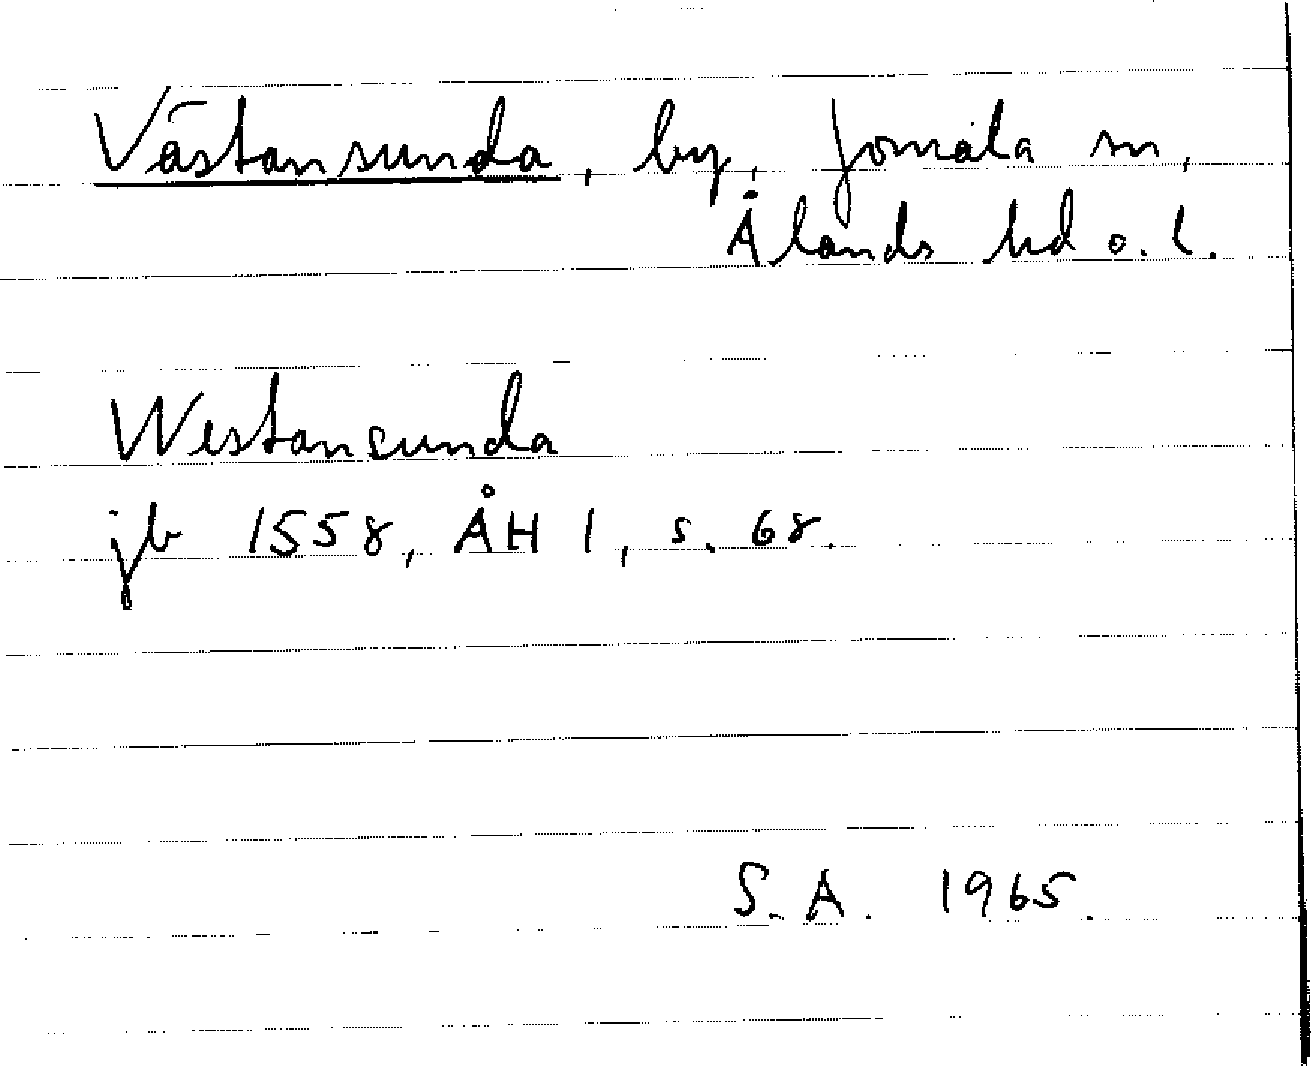 Västansunda, by, Jomala sn,
Ålands hd o. l.
Westansunda
jb 1558, ÅH 1, s. 68.
S. A. 1965.